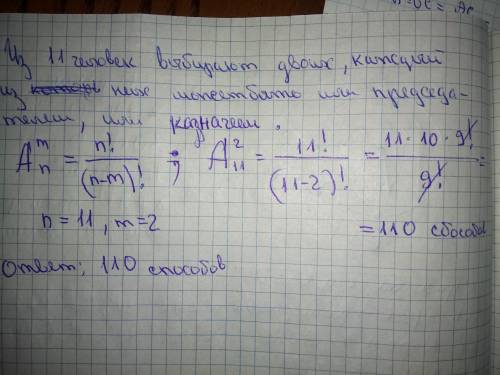 = Ac
Из 11 человек выбирают двоих, каждый
из них может быть или председа-
телем, или казначеем.
A_n^m = n!/(n-m)! ; A_11^2 = 11!/(11-2)! = 11·10·9!/9! =
n = 11, m=2
=110 способов
Ответ: 110 способов